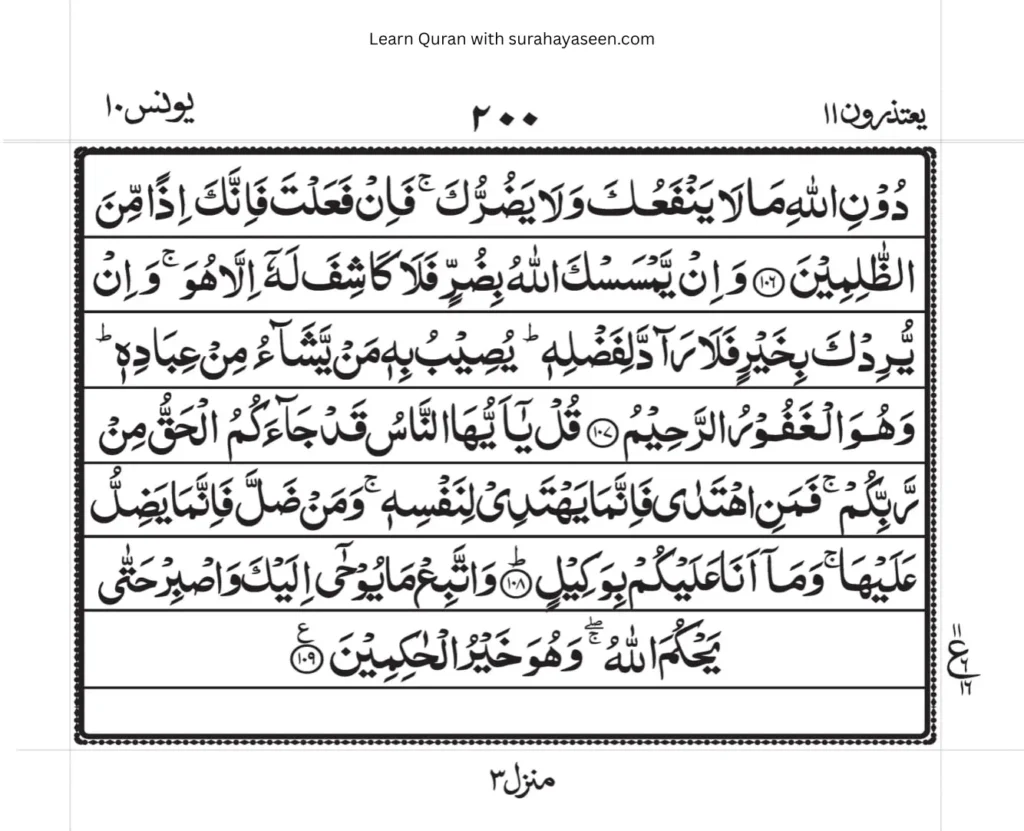 Learn Quran with surahayaseen.com
یعتذرون ۱۱ ۲۰۰ یونس ۱۰
دُوْنِ اللّٰهِ مَا لَا يَنْفَعُكَ وَلَا يَضُرُّكَ ۚ فَاِنْ فَعَلْتَ فَاِنَّكَ اِذًا مِّنَ
الظّٰلِمِيْنَ ﴿۱۰۶﴾ وَاِنْ يَّمْسَسْكَ اللّٰهُ بِضُرٍّ فَلَا كَاشِفَ لَهٗٓ اِلَّا هُوَ ۚ وَاِنْ
يُّرِدْكَ بِخَيْرٍ فَلَا رَآدَّ لِفَضْلِهٖ ؕ يُصِيْبُ بِهٖ مَنْ يَّشَآءُ مِنْ عِبَادِهٖ ؕ
وَهُوَ الْغَفُوْرُ الرَّحِيْمُ ﴿۱۰۷﴾ قُلْ يٰٓاَيُّهَا النَّاسُ قَدْ جَآءَكُمُ الْحَقُّ مِنْ
رَّبِّكُمْ ۚ فَمَنِ اهْتَدٰى فَاِنَّمَا يَهْتَدِىْ لِنَفْسِهٖ ۚ وَمَنْ ضَلَّ فَاِنَّمَا يَضِلُّ
عَلَيْهَا ۚ وَمَآ اَنَا عَلَيْكُمْ بِوَكِيْلٍ ؕ ﴿۱۰۸﴾ وَاتَّبِعْ مَا يُوْحٰٓى اِلَيْكَ وَاصْبِرْ حَتّٰى
يَحْكُمَ اللّٰهُ ۖۚ وَهُوَ خَيْرُ الْحٰكِمِيْنَ ﴿۱۰۹﴾ ع
۱۱
ع ۶
۱۶
منزل ۳